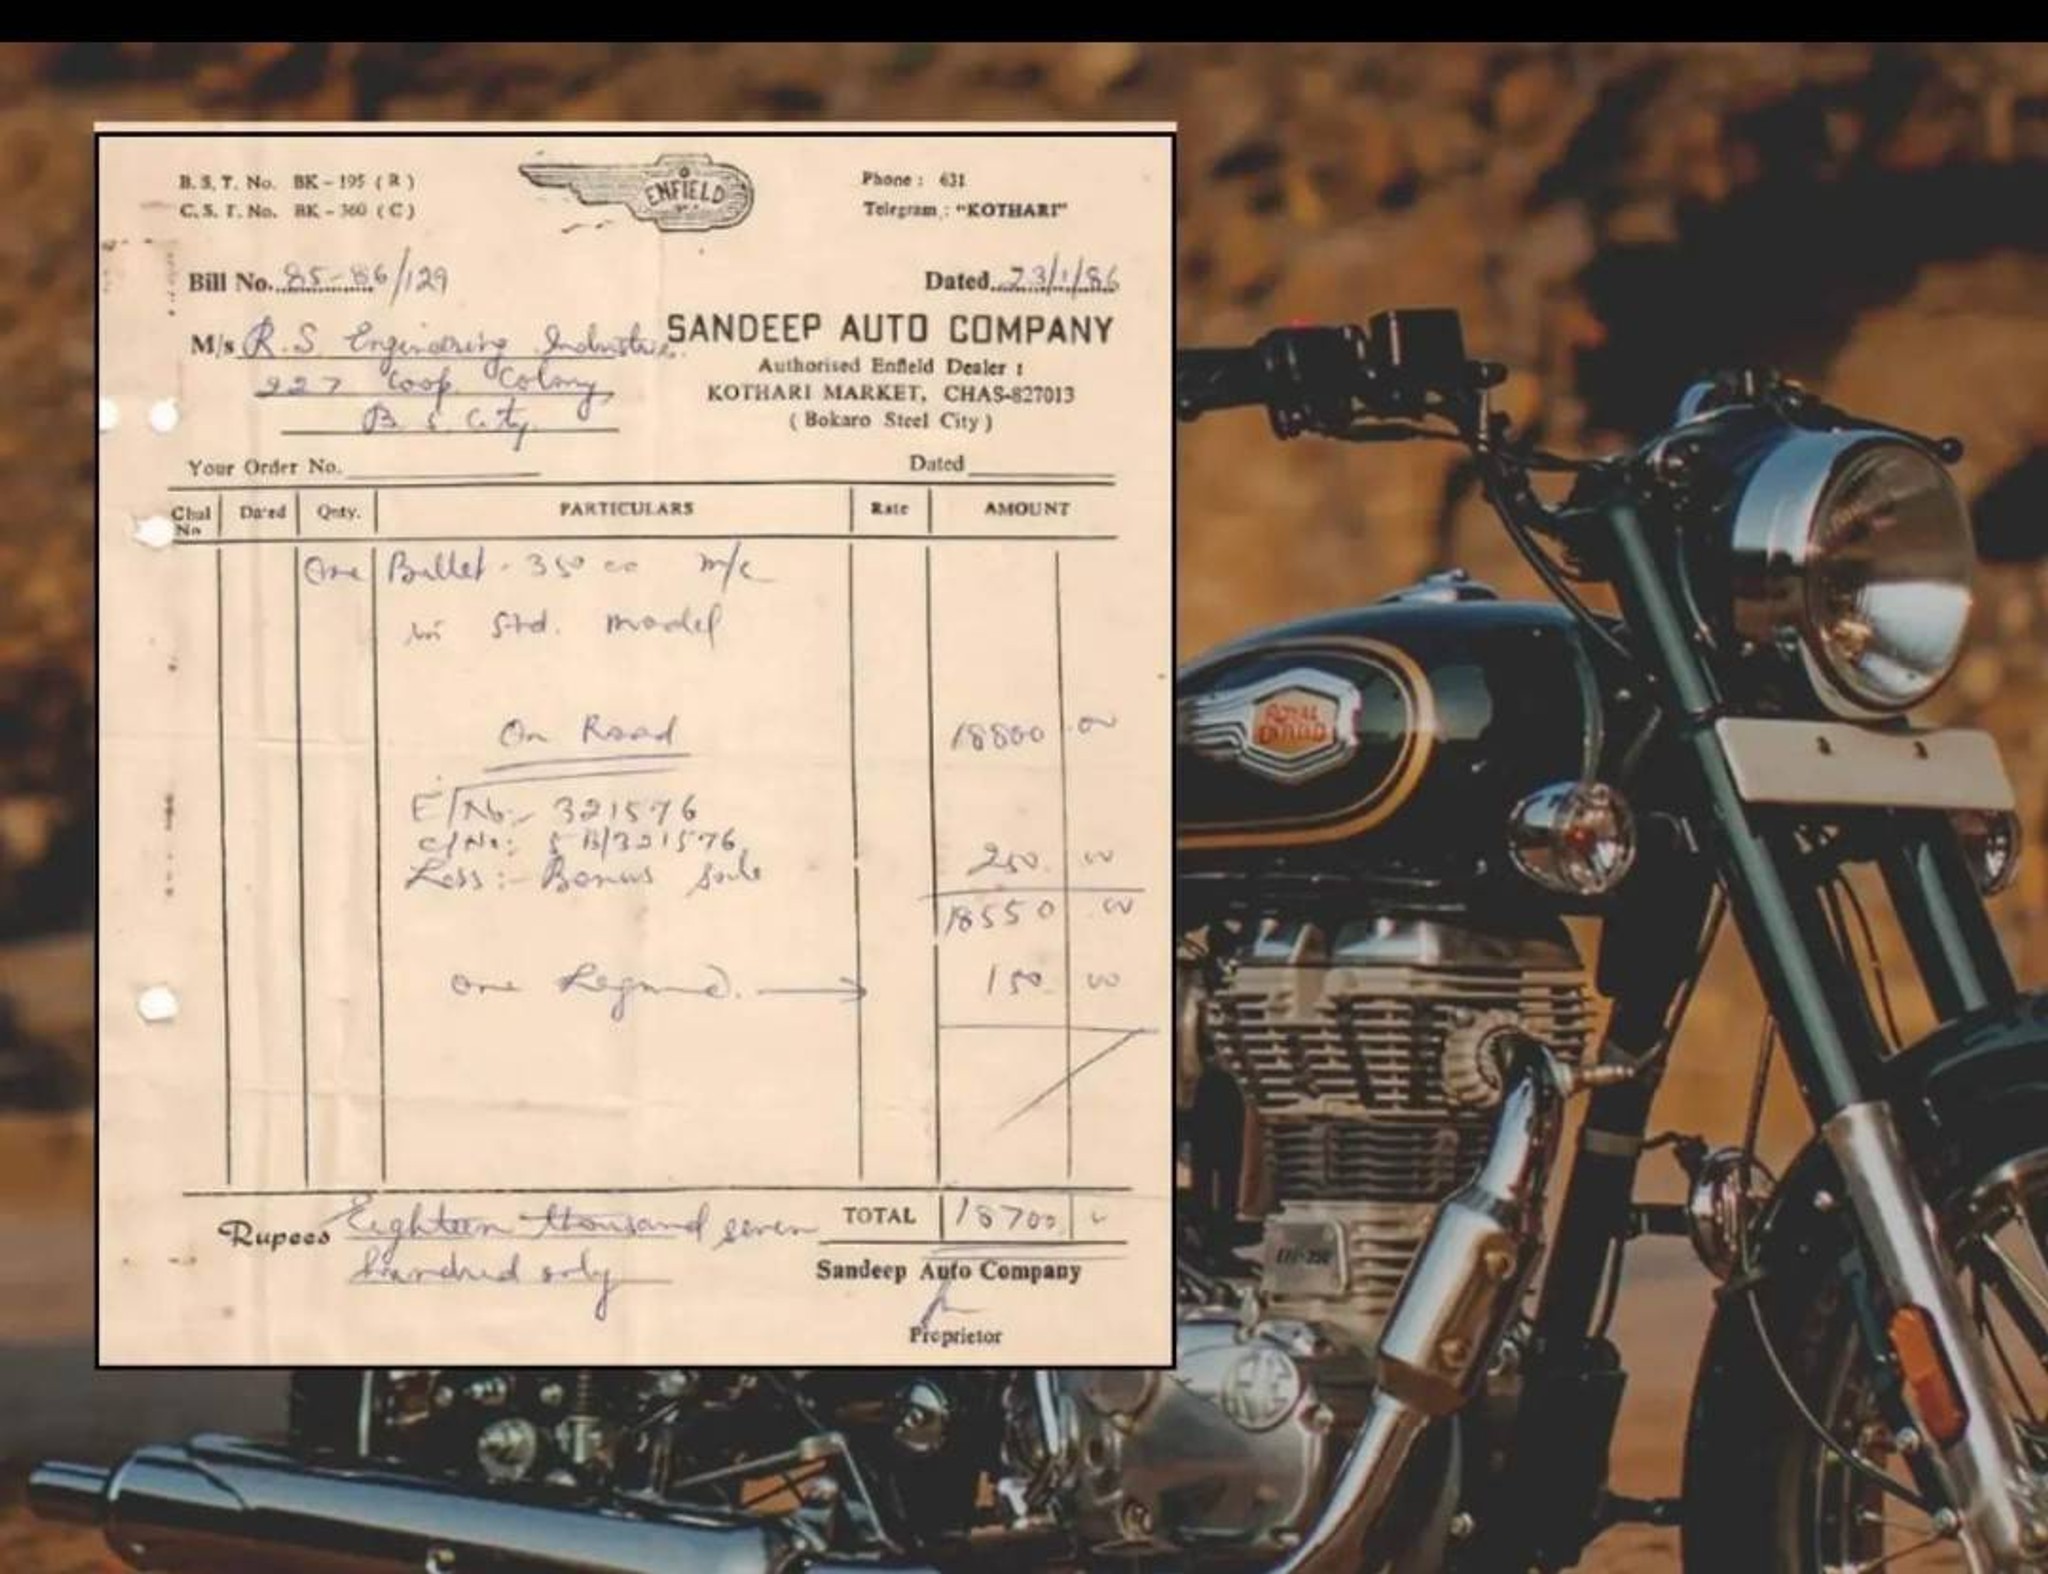 B. S. T. No. BK - 195 ( R )
C. S. T. No. BK - 360 ( C )
ENFIELD
Phone : 631
Telegram : "KOTHARI"
Bill No. 85-86/129
Dated 23/1/86
M/s R.S Engineering Industries
227 Coop. Colony
B. S. City
SANDEEP AUTO COMPANY
Authorised Enfield Dealer :
KOTHARI MARKET, CHAS-827013
( Bokaro Steel City )
Your Order No.
Dated
Chal No Dated Qnty. PARTICULARS Rate AMOUNT
One Bullet - 350 cc m/c
in Std. model
On Road 18800 .00
E/No:- 321576
C/No: 5 B/321576
Less :- Bonus 250. 00
18550 .00
one Legguard. 150. 00
Rupees Eighteen thousand seven
hundred only
TOTAL 18700
Sandeep Auto Company
Proprietor
ROYAL
ENFIELD